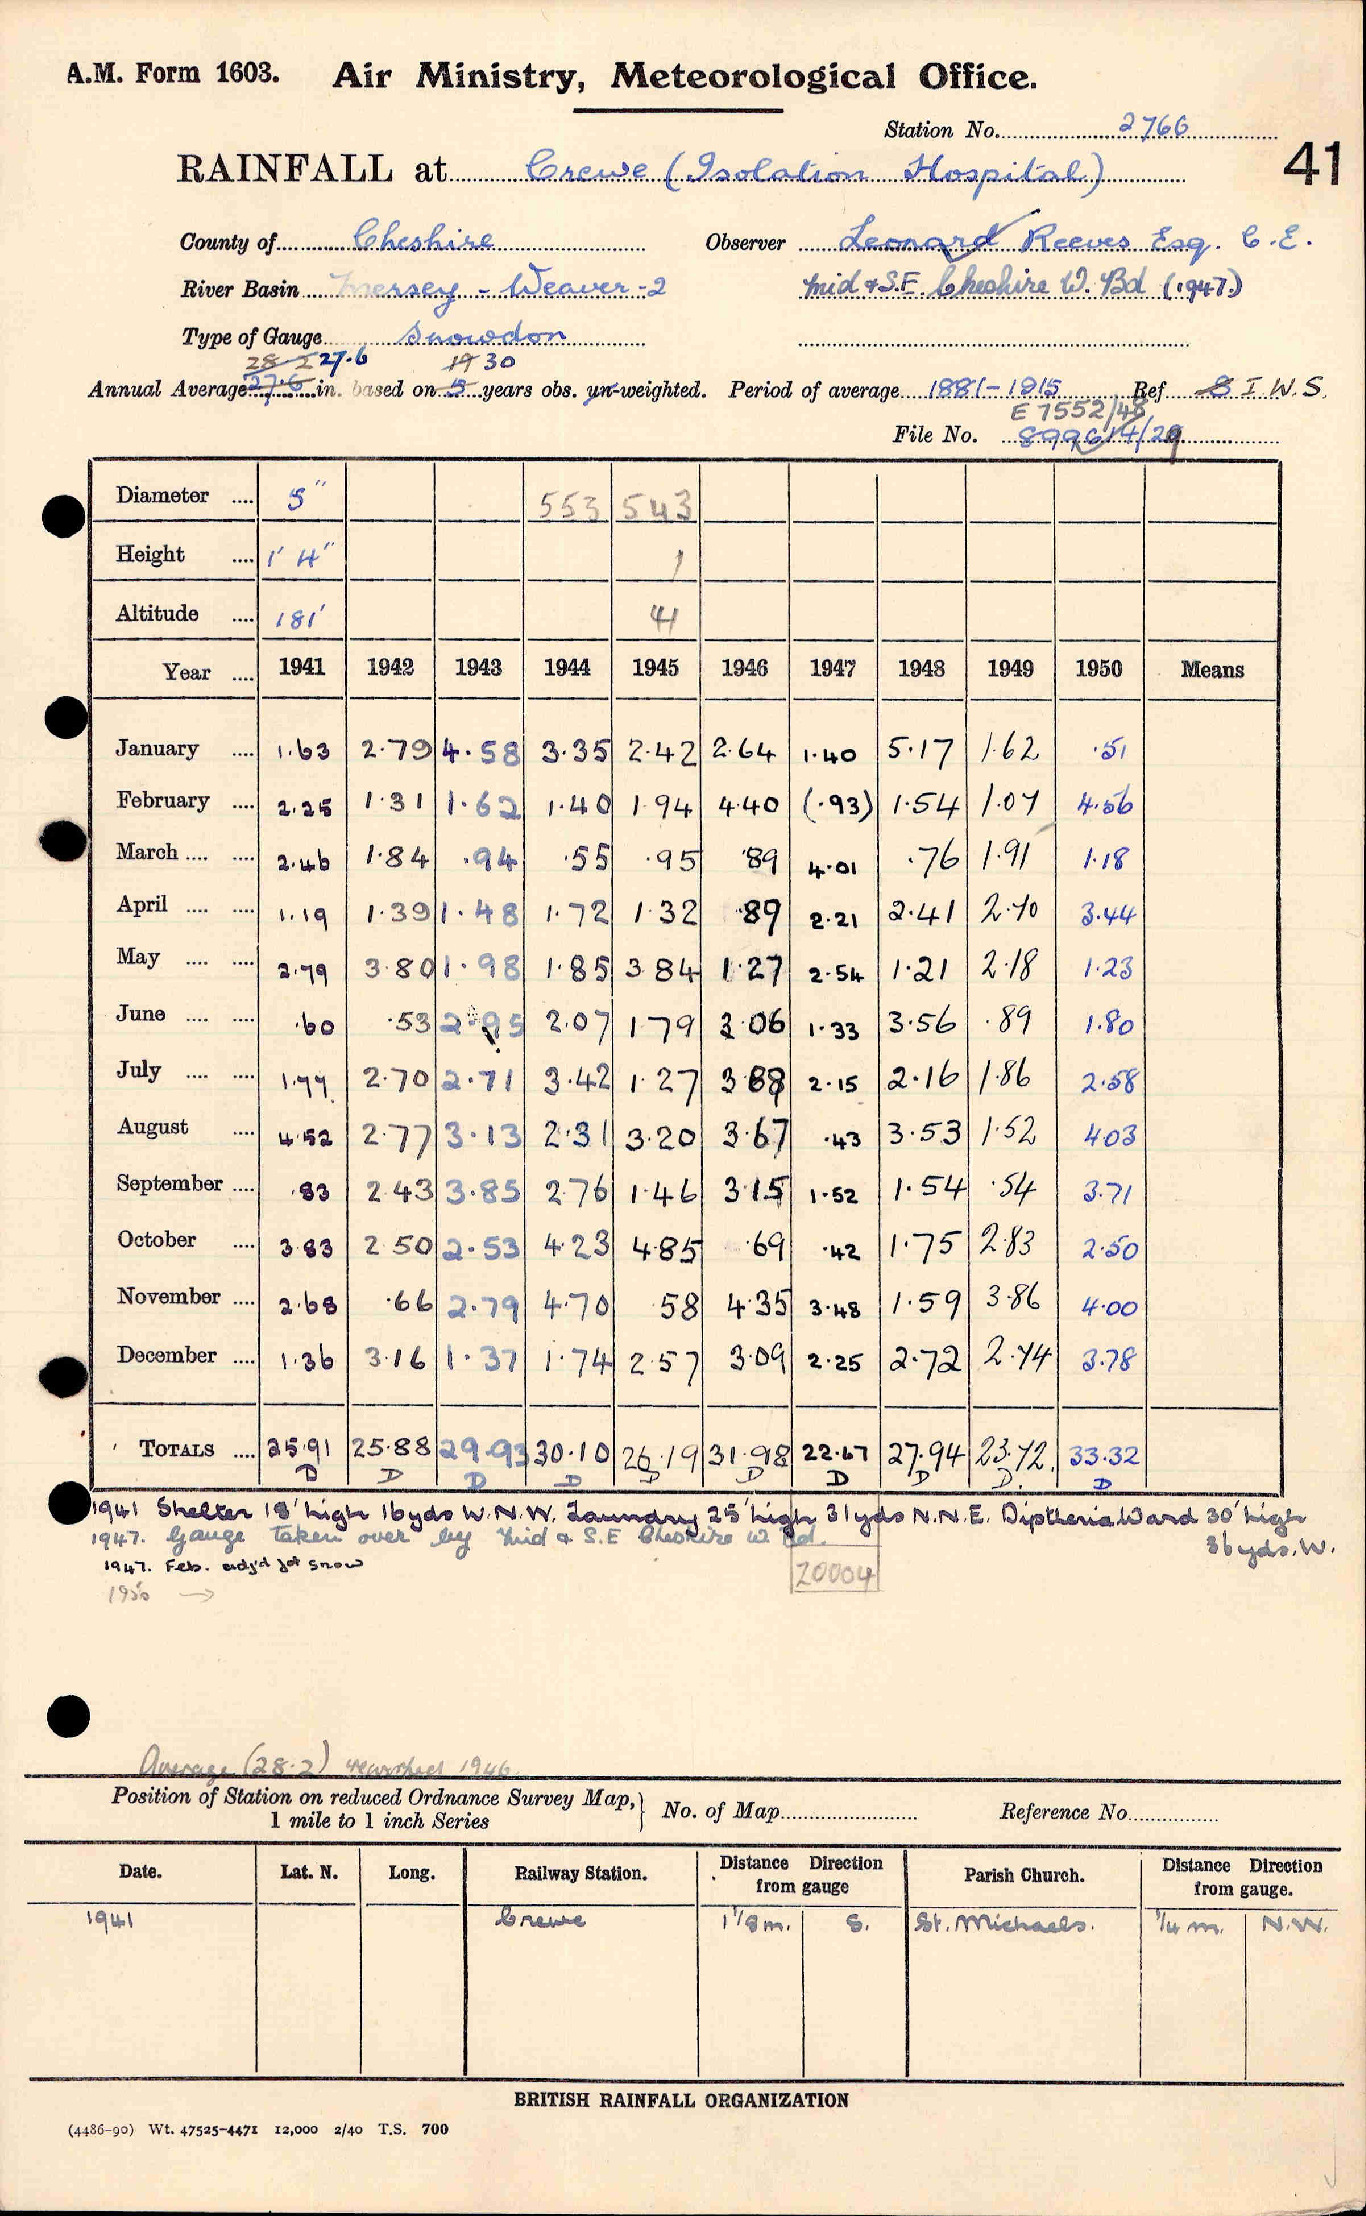 A.M. Form 1603. Air Ministry, Meteorological Office.
Station No. 2766
41
RAINFALL at Crewe (Isolation Hospital)
County of Cheshire Observer Leonard Reeves Esq. C.E.
River Basin Mersey - Weaver -2 Mid & S.E Cheshire W. Bd (1947)
Type of Gauge Snowdon
28·2 27·6 19 30
Annual Average 27·6 in. based on 5 years obs. un-weighted. Period of average 1881-1915 Ref 8 I W.S.
E 7552/48
File No. 899614/29
Diameter .... 5" 553 543
Height .... 1' 4" 1
Altitude .... 181' 41
Year .... 1941 1942 1943 1944 1945 1946 1947 1948 1949 1950 Means
January .... 1·63 2·79 4·58 3·35 2·42 2·64 1·40 5·17 1·62 ·51
February .... 2·25 1·31 1·62 1·40 1·94 4·40 (·93) 1·54 1·07 4·56
March .... .... 2·46 1·84 ·94 ·55 ·95 ·89 4·01 ·76 1·91 1·18
April .... .... 1·19 1·39 1·48 1·72 1·32 ·89 2·21 2·41 2·70 3·44
May .... .... 2·79 3·80 1·98 1·85 3·84 1·27 2·54 1·21 2·18 1·23
June .... .... ·60 ·53 2·95 2·07 1·79 3·06 1·33 3·56 ·89 1·80
July .... .... 1·77 2·70 2·71 3·42 1·27 3·88 2·15 2·16 1·86 2·58
August .... 4·52 2·77 3·13 2·31 3·20 3·67 ·43 3·53 1·52 4·03
September .... ·83 2·43 3·85 2·76 1·46 3·15 1·52 1·54 ·54 3·71
October .... 3·83 2·50 2·53 4·23 4·85 ·69 ·42 1·75 2·83 2·50
November .... 2·68 ·66 2·79 4·70 58 4·35 3·48 1·59 3·86 4·00
December .... 1·36 3·16 1·37 1·74 2·57 3·09 2·25 2·72 2·74 3·78
TOTALS .... 25·91 25·88 29·93 30·10 26·19 31·98 22·67 27·94 23·72 33·32
D D D D D D D D D D
1941 Shelter 18' high 16yds W.N.W. Laundry 25' high 31yds N.N.E. Diptheria Ward 30' high
36yds. W.
1947. Gauge taken over by Mid & S.E Cheshire W Bd.
1947. Feb. adj'd for snow
20004
1950 →
Average (28·2) 1946
Position of Station on reduced Ordnance Survey Map,
1 mile to 1 inch Series } No. of Map Reference No.
Date. Lat. N. Long. Railway Station. Distance Direction from gauge Parish Church. Distance Direction from gauge.
1941 Crewe 1⅛m. S. St. Michaels. ¼ m. N.W.
BRITISH RAINFALL ORGANIZATION
(4486-90) Wt. 47525-4471 12,000 2/40 T.S. 700